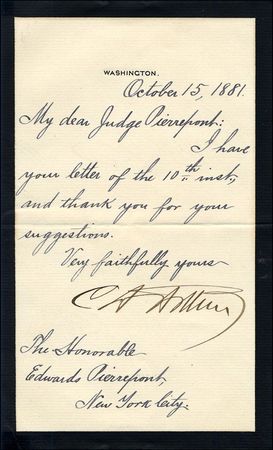 WASHINGTON.
October 15, 1881.
My dear Judge Pierrepont:
I have
your letter of the 10th inst,
and thank you for your
suggestions.
Very faithfully yours
C A Arthur
The Honorable
Edwards Pierrepont,
New York City.